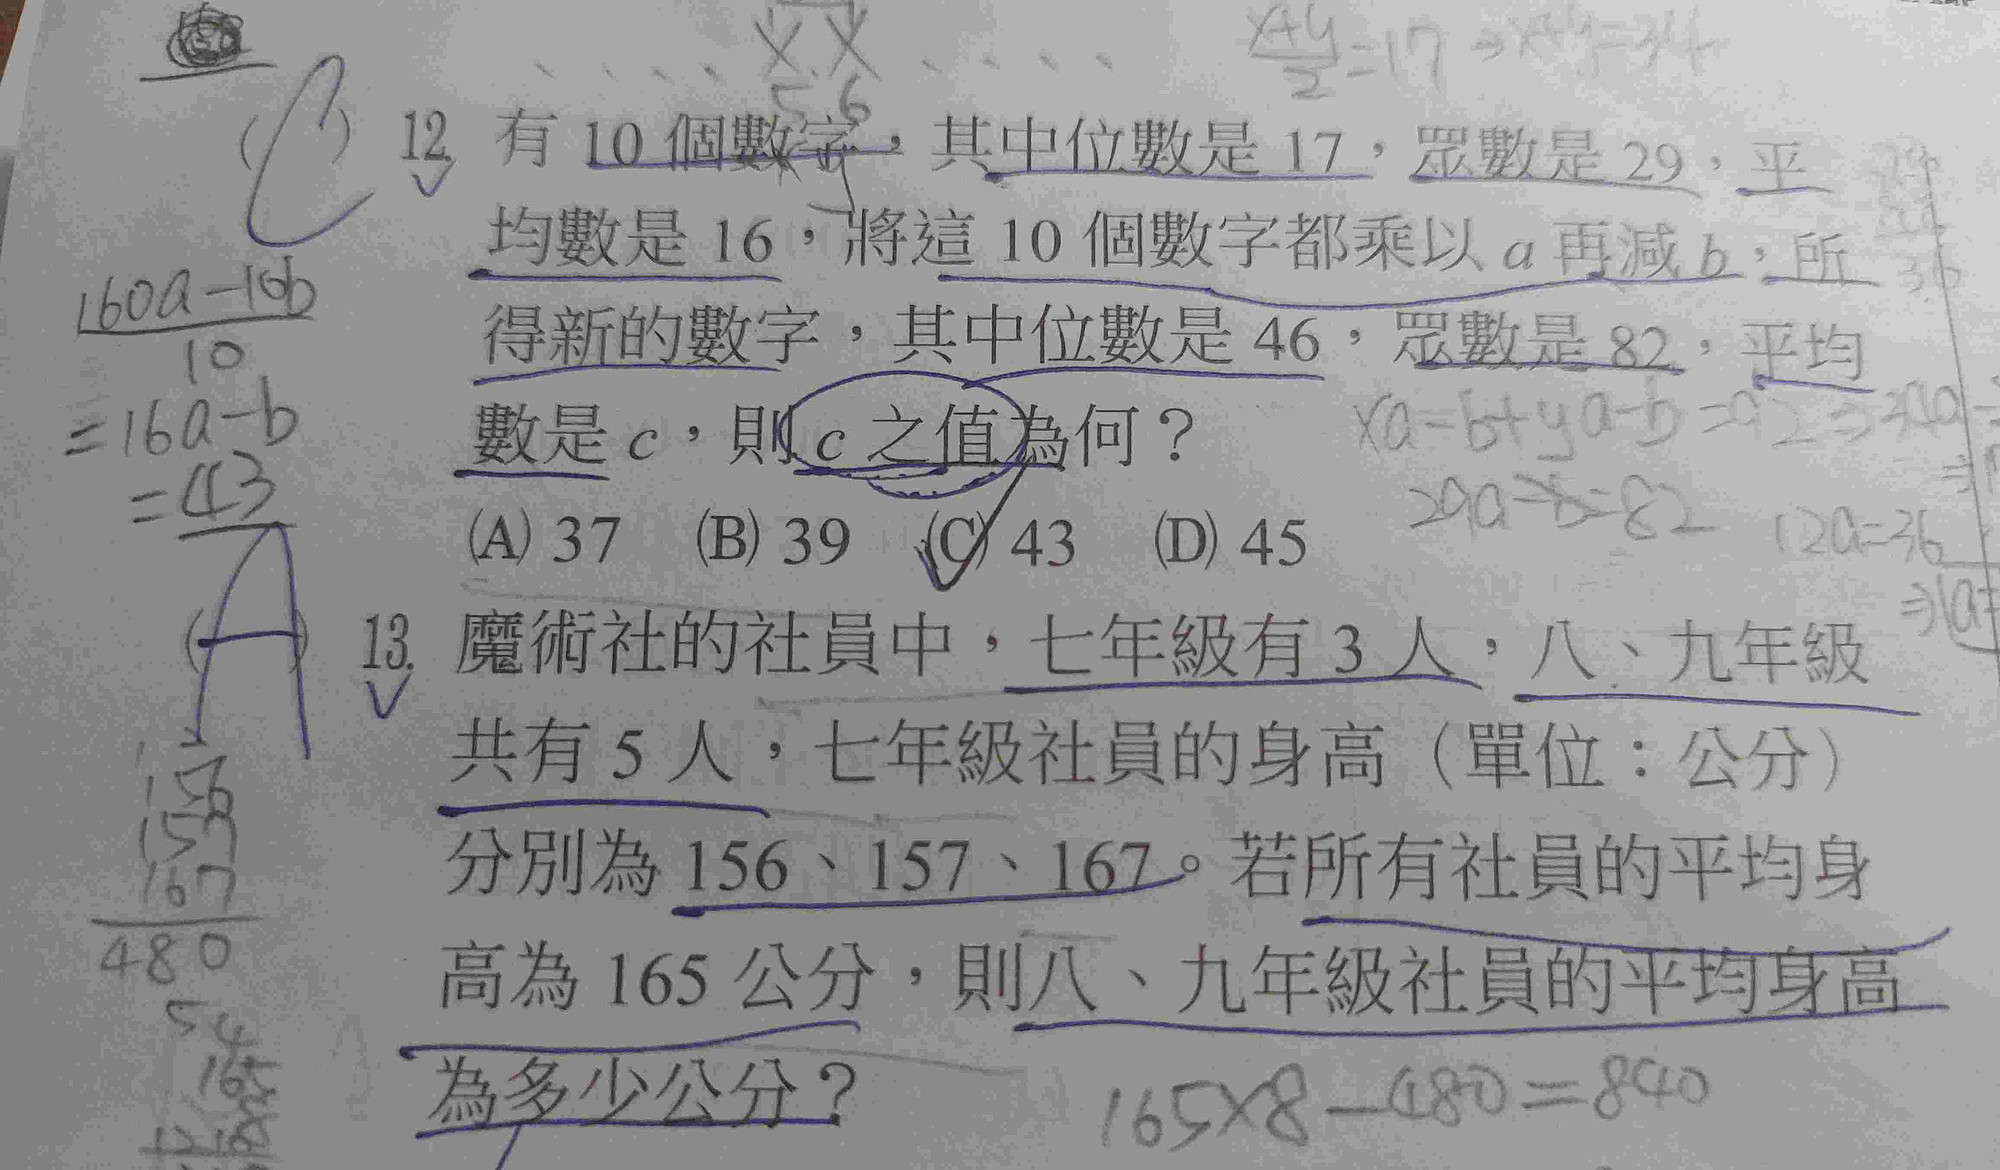 x+y/2=17⇒x+y=34
5 6
(C) 12. 有 10 個數字，其中位數是 17，眾數是 29，平
均數是 16，將這 10 個數字都乘以 a 再減 b，所
得新的數字，其中位數是 46，眾數是 82，平均
數是 c，則 c 之值為何？
(A) 37 (B) 39 (C) 43 (D) 45
160a-10b
10
=16a-b
=43
xa-b+ya-b=92⇒34a-
29a-b=82
12a=36
⇒a=
(A) 13. 魔術社的社員中，七年級有 3 人，八、九年級
共有 5 人，七年級社員的身高（單位：公分）
分別為 156、157、167。若所有社員的平均身
高為 165 公分，則八、九年級社員的平均身高
為多少公分？
156
157
167
480
54
165
165×8-480=840